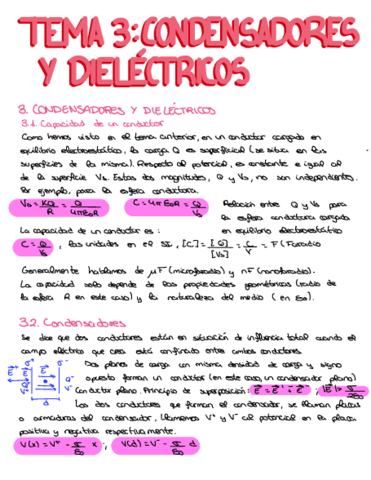 TEMA 3: CONDENSADORES
Y DIELÉCTRICOS
3. CONDENSADORES Y DIELÉCTRICOS
3.1. Capacidad de un conductor
Como hemos visto en el tema anterior, en un conductor cargado en
equilibrio electroestático, la carga Q es superficial (se situa en las
superficies de la misma). Respecto al potencial, es constante e igual al
de la superficie Vs. Estas dos magnitudes, Q y Vs, no son independientes.
Por ejemplo, para la esfera conductora.
Vs = KQ/R = Q/4πE₀R C = 4πE₀R = Q/Vs Relación entre Q y Vs para
la esfera conductora cargada
La capacidad de un conductor es: en equilibrio electroestático
C = Q/Vs, las unidades en el SI, [C] = [Q]/[Vs] = C/V = F (Faradio
Generalmente hablamos de μF (microfaradio) y nF (nanofaradio).
La capacidad solo depende de las propiedades geométricas (radio de
la esfera R en este caso) y la naturaleza del medio (en E₀).
3.2. Condensadores
Se dice que dos conductores están en situación de influencia total cuando el
campo eléctrico que crea está confinado entre ambos conductores.
Dos planos de carga con misma densidad de carga y signo
opuesto forman un conductor (en este caso, un condensador plano)
Conductor plano. Principio de superposición:
Los dos conductores que forman el condensador, se llaman placas
o armaduras del condensador, llamemos V⁺ y V⁻ al potencial en la placa
positiva y negativa respectivamente.
V(x) = V⁺ - σ/E₀ x ; V(d) = V⁻ - σ/E₀ d